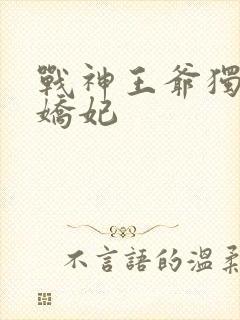 戰神王爺獨
嬌妃
不言語的溫柔